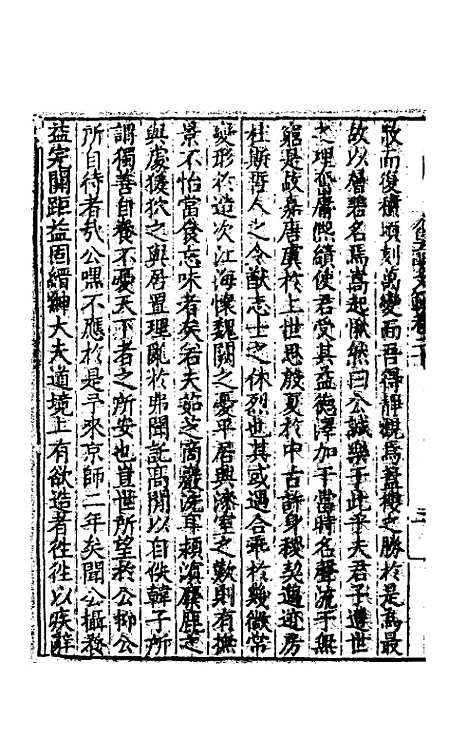 散而復橫頃刻萬變而吾得靜觀焉蓋樓之勝於是爲最
故以層碧名焉嵩起愀然曰公誠樂于此乎夫君子遭世
之理奮庸熙績使君受其益德澤加于當時名聲流于無
窮是故嘉唐虞於上世思殷夏於中古許身稷契邁迹房
杜斯哲人之令猷志士之休烈也其或遇合乖於幾微常
變形於造次江海懷魏闕之憂平居興漆室之歎則有撫
景不怡當食忘味者矣若夫茹芝商巖洗耳潁濱麋鹿之
與處猨狖之與居置理亂於弗聞託高閒以自佚韓子所
謂獨善自養不憂天下者之所安也豈世所望於公抑公
所自待者哉公嘿不應於是予來京師二年矣聞公橋殺
益完關距益固縉紳大夫道境上有欲造者往往以疾辭